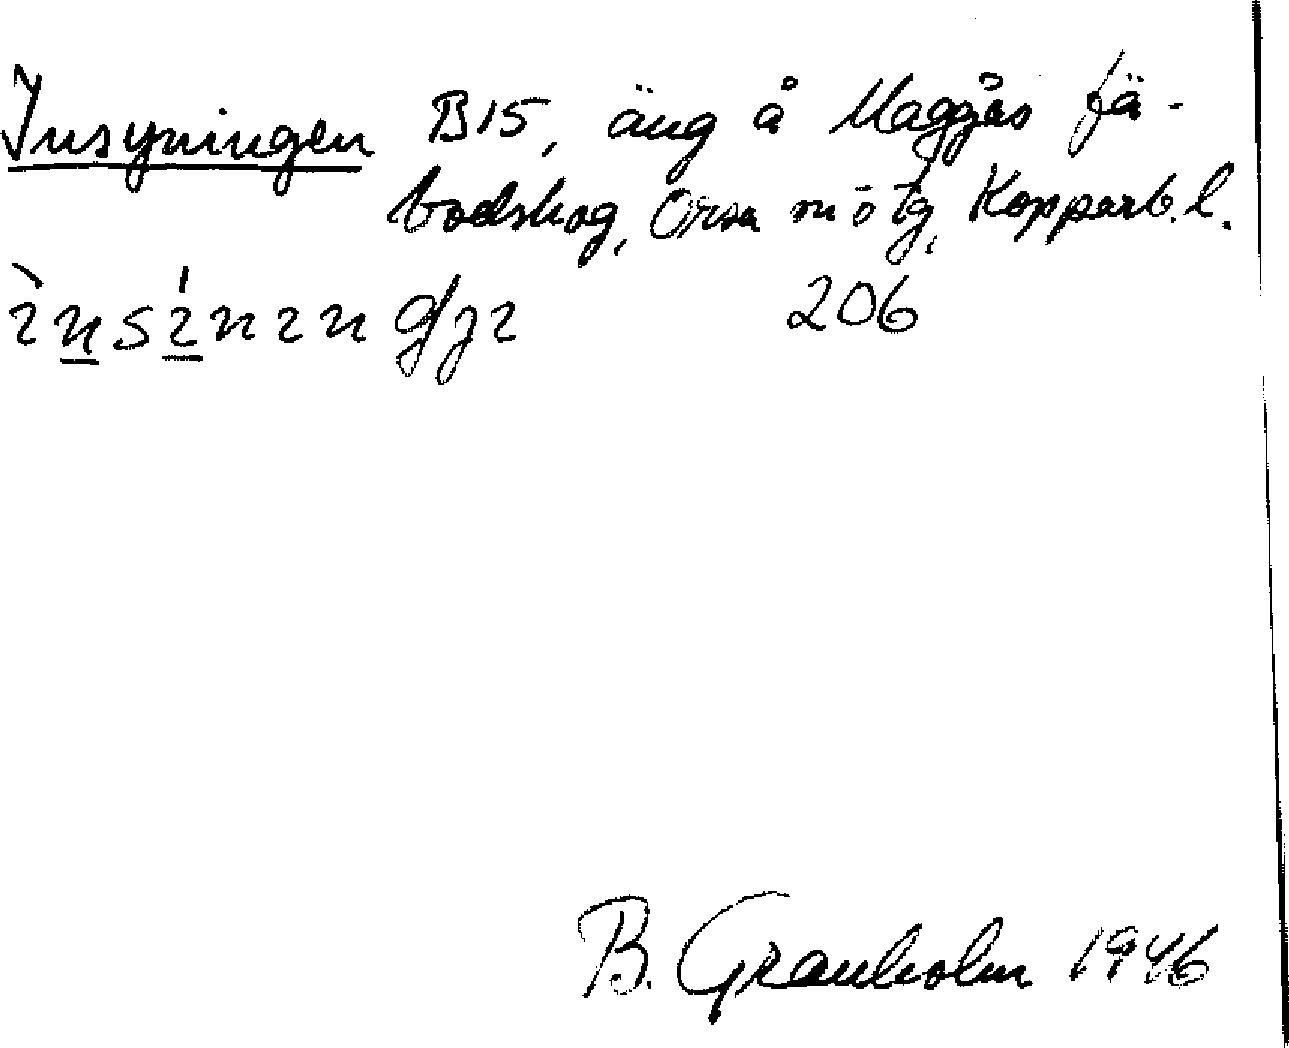 Insyningen B15, äng å Maggås fä-
bodskog, Orsa m o tg, Kopparb. l.
206
B. Granholm 1946